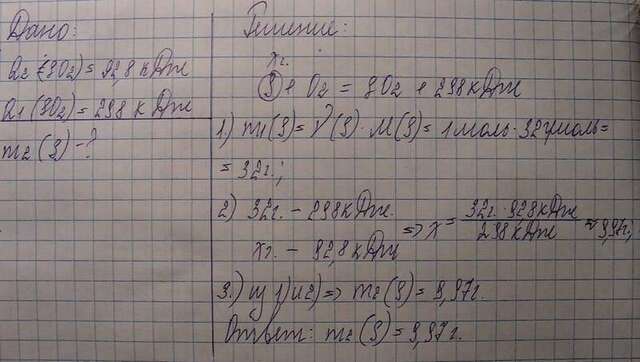 Дано:
Q2 (SO2) = 92,8 кДж
Q1 (SO2) = 298 кДж
m2 (S) - ?
Решение:
xг.
S + O2 = SO2 + 298 кДж
1) m1(S) = ν(S) · M(S) = 1 моль · 32 г/моль =
= 32г.;
2) 32г. – 298 кДж.
xг. – 92,8 кДж
=> x = 32г. · 92,8 кДж / 298 кДж = 9,97г;
3.) из 1) и 2) => m2 (S) = 9,97г.
Ответ: m2 (S) = 9,97г.